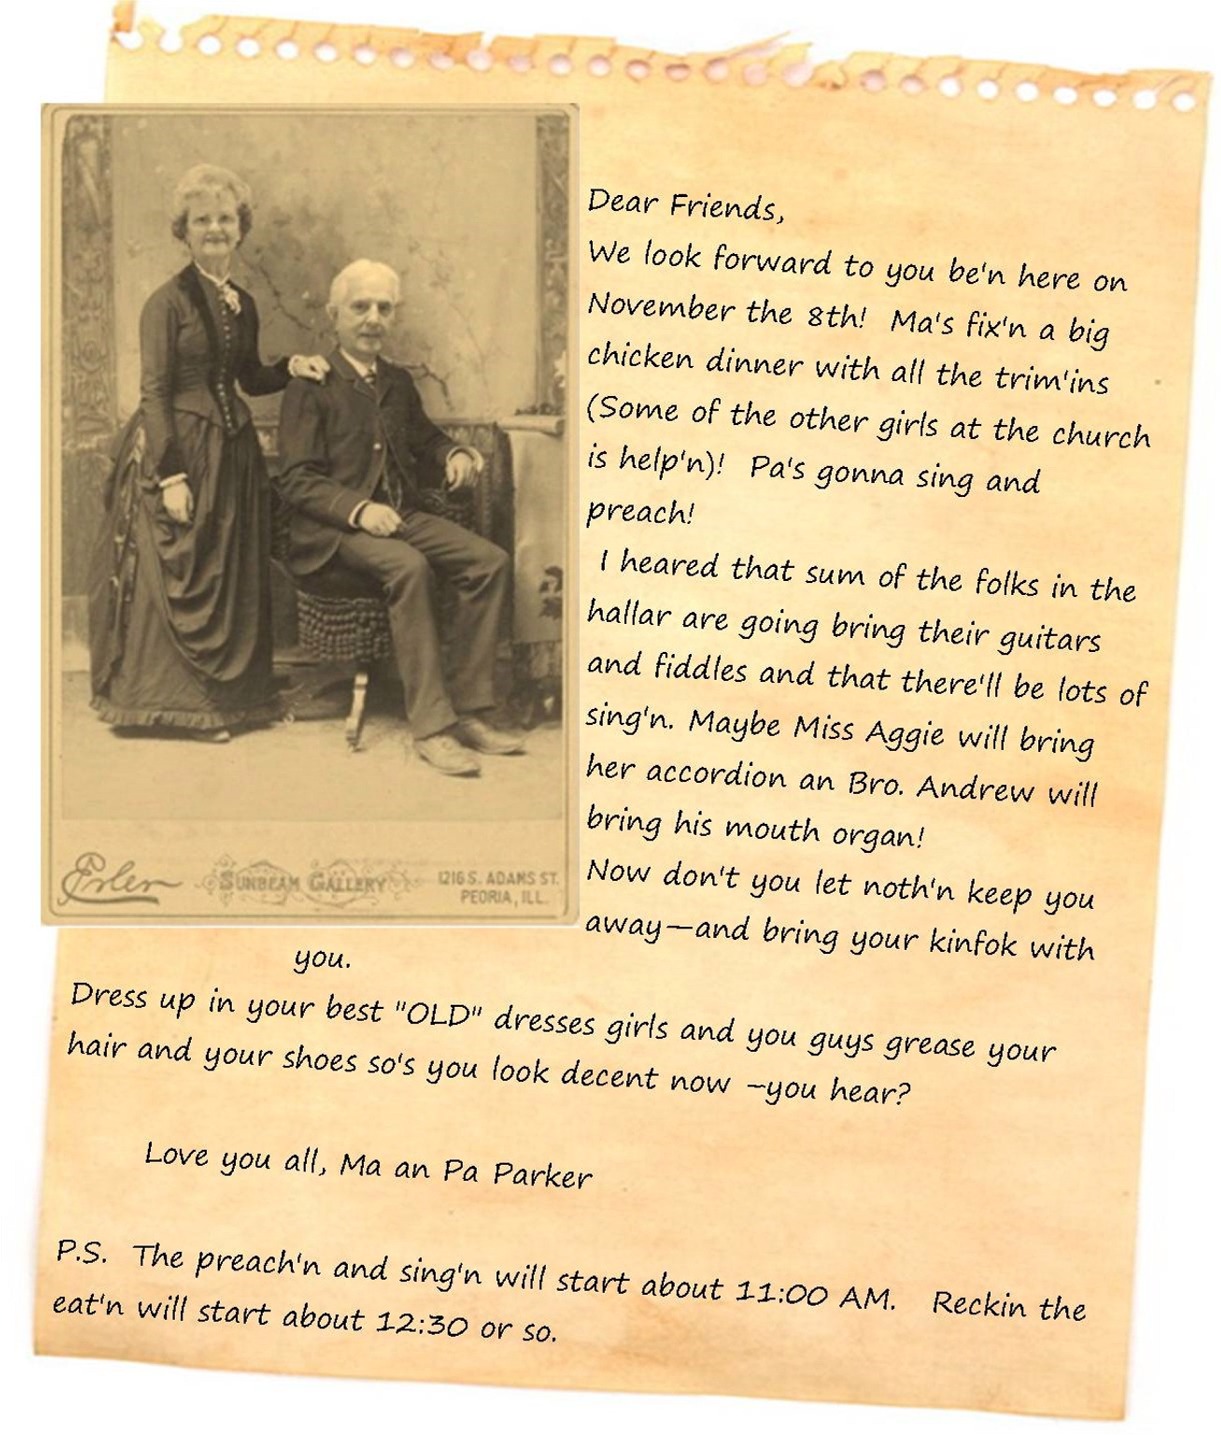 Dear Friends,
We look forward to you be'n here on
November the 8th!  Ma's fix'n a big
chicken dinner with all the trim'ins
(Some of the other girls at the church
is help'n)!  Pa's gonna sing and
preach!
I heared that sum of the folks in the
hallar are going bring their guitars
and fiddles and that there'll be lots of
sing'n. Maybe Miss Aggie will bring
her accordion an Bro. Andrew will
bring his mouth organ!
Now don't you let noth'n keep you
away—and bring your kinfok with
you.
Dress up in your best "OLD" dresses girls and you guys grease your
hair and your shoes so's you look decent now –you hear?
Love you all, Ma an Pa Parker
P.S.  The preach'n and sing'n will start about 11:00 AM.   Reckin the
eat'n will start about 12:30 or so.
SUNBEAM GALLERY
1216 S. ADAMS ST.
PEORIA, ILL.